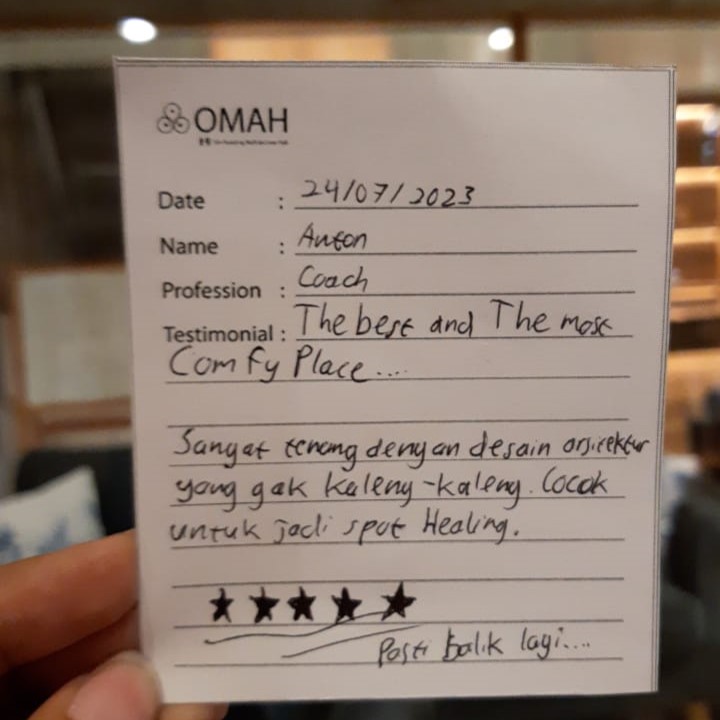 OMAH
Date : 24/07/2023
Name : Anton
Profession : Coach
Testimonial : The best and The most
Comfy Place....
Sangat tenang dengan desain arsitektur
yang gak kaleng-kaleng. Cocok
untuk jadi spot Healing.
★ ★ ★ ★ ★
Pasti balik lagi....